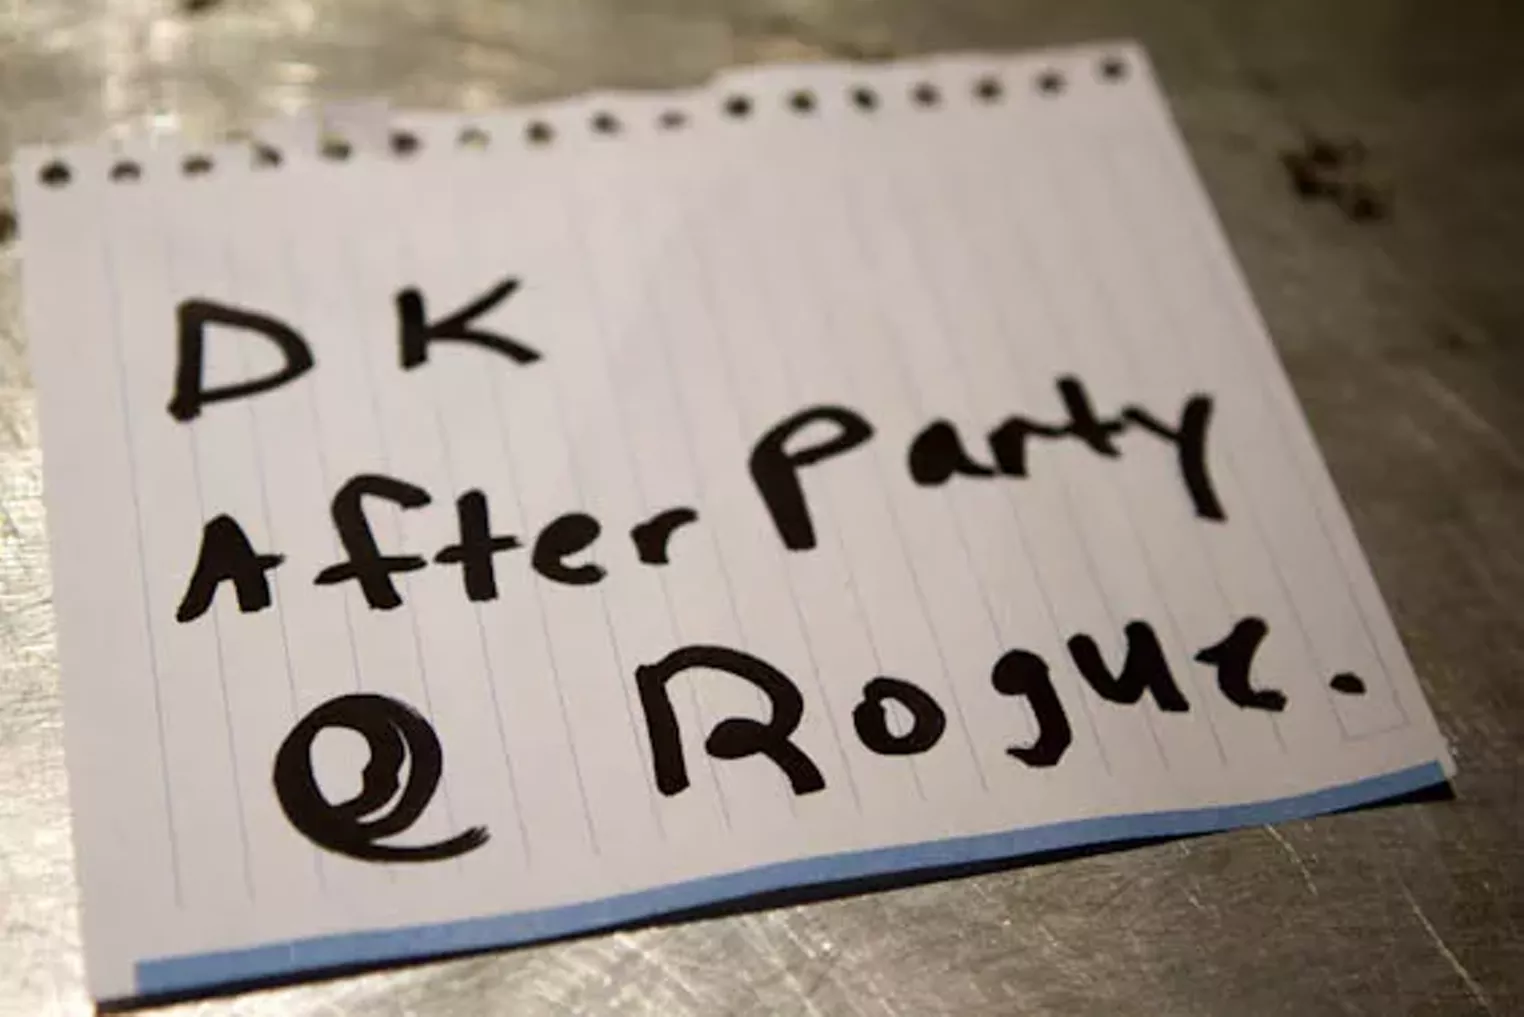 DK
After Party
@ Rogue.